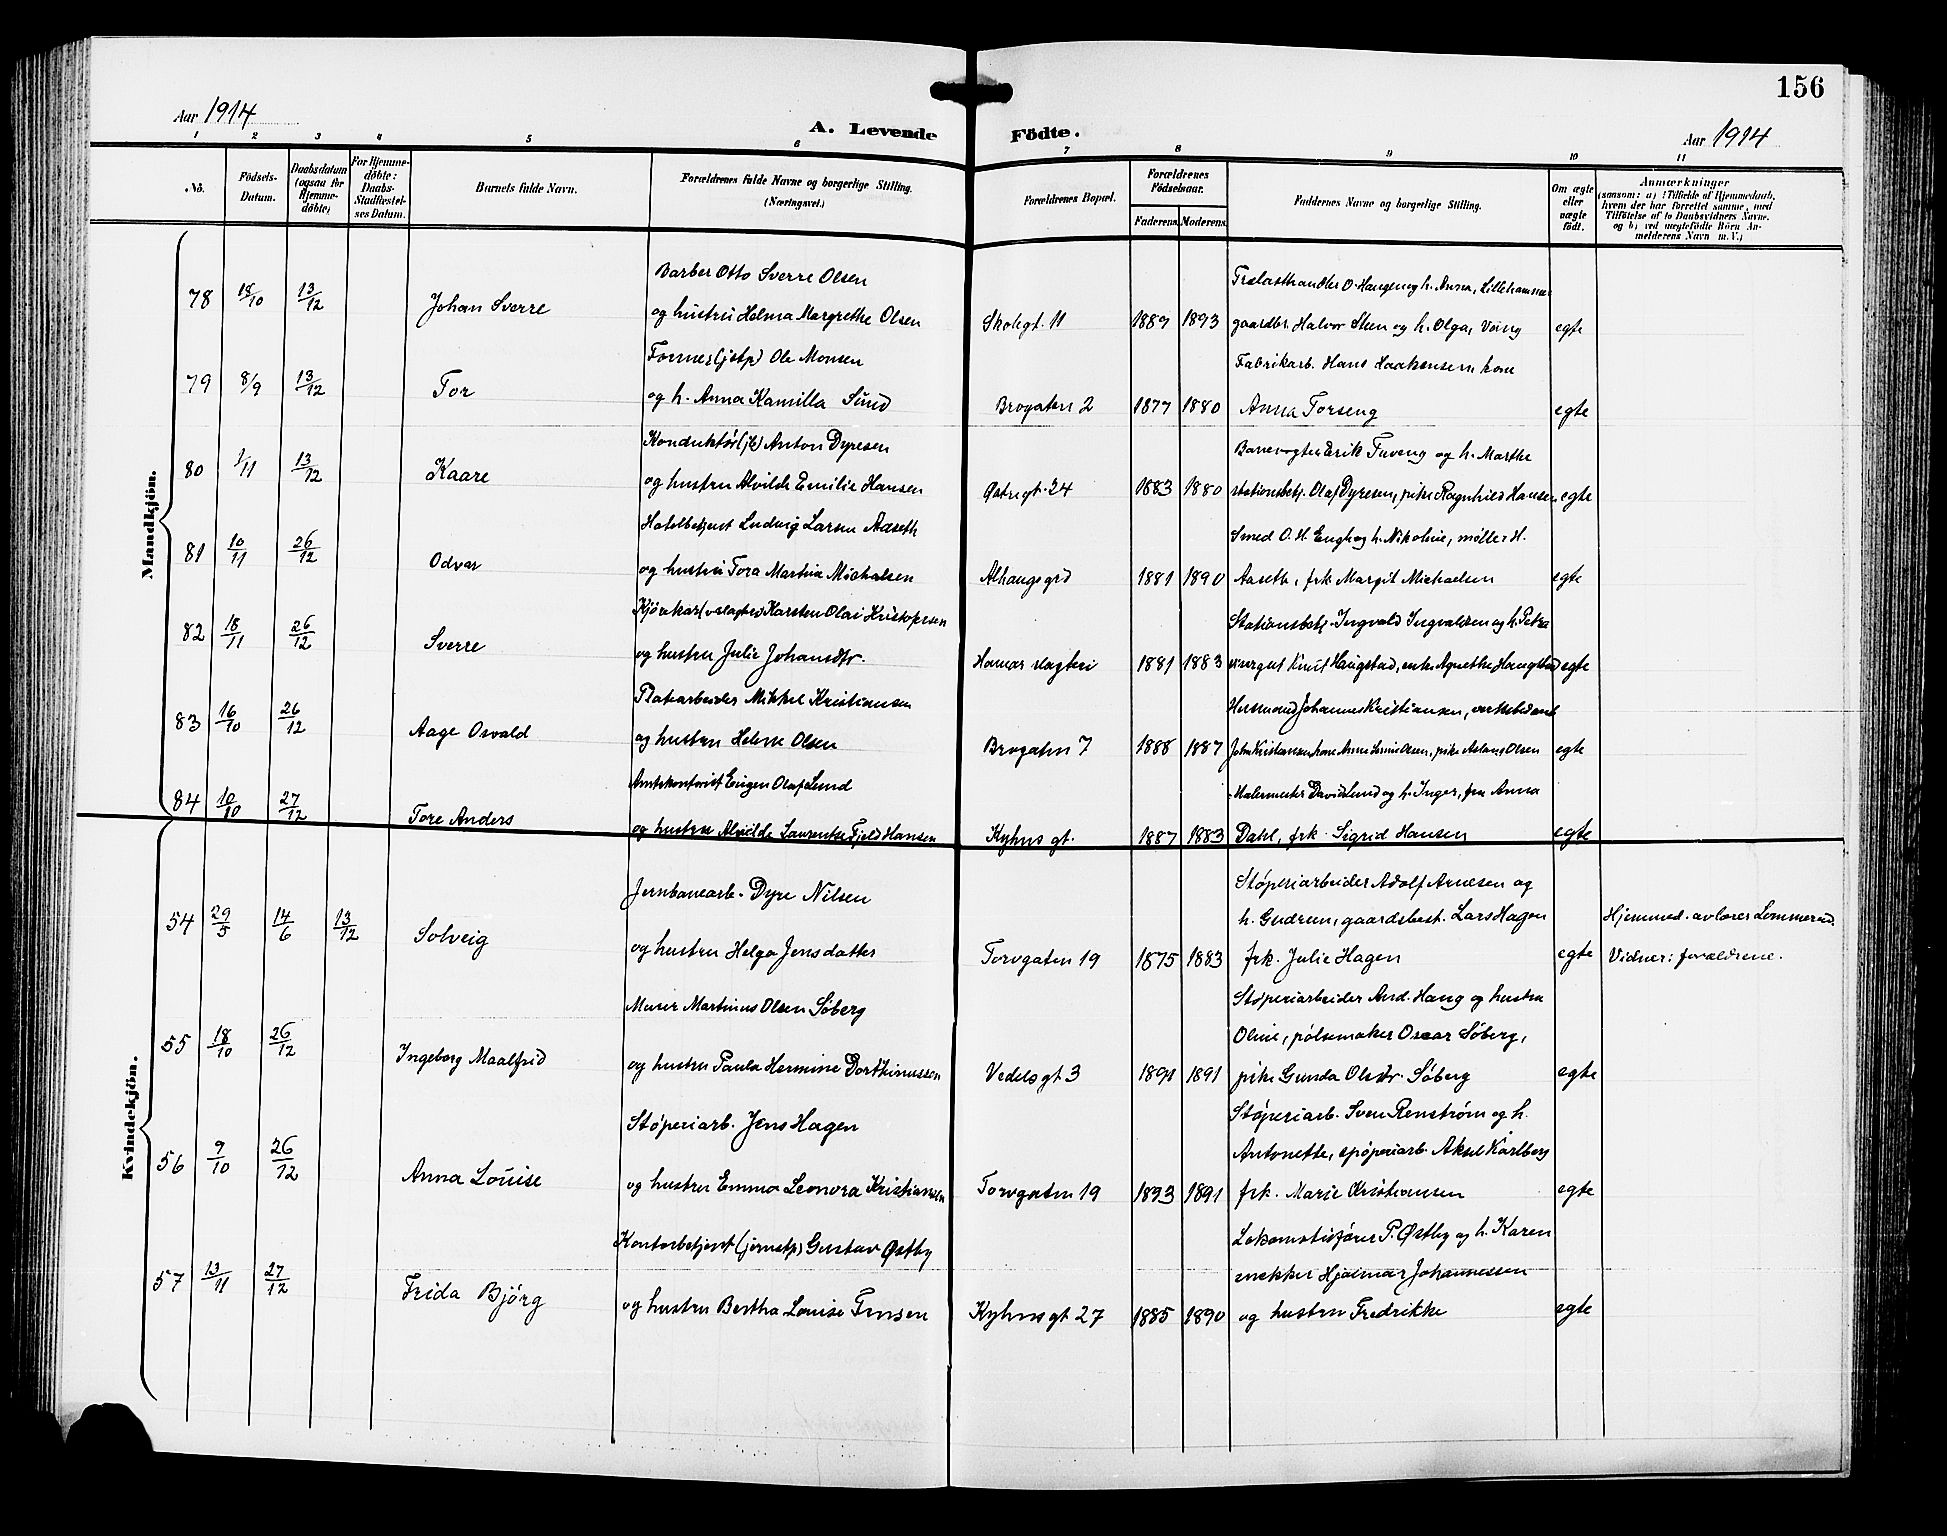 156
Aar 1914
A. Levende Födte.
Aar 1914
1 2 3 4 5 6 7 8 9 10 11
No.
Födsels-Datum.
Daabsdatum (ogsaa for Hjemme-döbte)
For Hjemme-döbte: Daabs-Stadfæstel-ses Datum.
Barnets fulde Navn.
Forældrenes fulde Navne og borgerlige Stilling. (Næringsvei.)
Forældrenes Bopæl.
Forældrenes Födselsaar.
Faderens. Moderens.
Faddernes Navne og borgerlige Stilling.
Om ægte eller uægte födt.
Anmærkninger
(saasom: a) i Tilfælde af Hjemmedaab, hvem der har forrettet samme, med Tilföielse af to Daabsvidners Navne, og b) ved uægtefödte Börn An-melderens Navn m. V.)
Mandkjön.
Barber Otto Sverre Olsen
78 18/10 13/12 Johan Sverre og hustru Helma Margrethe Olsen Skolegt. 11 1889 1893
Trælasthandler O. Haugen og h. Anna, Lillehammer
gaardbr. Halvor Steen og h. Olga, Vang egte
(jstp) Ole Monsen
79 8/9 13/12 Tor og h. Anna Kamilla Sund Brogaten 2 1877 1880
Fabrikarb. Hans Haakensen kone
Anna Torseng egte
Konduktør (jb) Anton Dyresen
80 1/11 13/12 Kaare og hustru Alvilde Emilie Hansen Østregt. 24 1883 1880
Banevogter Erik Tuveng og h. Marthe
stationsbetj. Olaf Dyresen, pike Ragnhild Hansen egte
Hotelbetjent Ludvig Larsen Aaseth
81 10/11 26/12 Odvar og hustru Tora Martina Michalsen Alhaugsgrd 1881 1890
Smed O. H. Engh og h. Nikoline, møller H.
Aaseth, frk Margit Michaelsen egte
Kjørekar (v slagteri) Karsten Olai Kristopersen
82 18/11 26/12 Sverre og hustru Julie Johansdtr. Hamar slagteri 1881 1883
Stationsbetj. Ingvald Ingvaldsen og h. Petra
Knut Haugstad, enke Agnethe Haugstad egte
Platearbeider Mikkel Kristiansen
83 16/10 26/12 Aage Osvald og hustru Helene Olsen Brogaten 7 1888 1887
Hersmand Johannes Kristiansen,
John Kristiansen kone Anne Olsen, pike Aslaug Olsen egte
Amtskontorist Eugen Olaf Lund
84 10/10 27/12 Tore Anders og hustru Alvilde Laurentze Fjeld Hansen Kyhns gt. 1887 1883
Malermester David Lund og h. Inger, fru Anna
Dahl, frk. Sigrid Hansen egte
Kvindekjön.
Jernbanearb. Dyre Nilsen
54 29/5 14/6 13/12 Solveig og hustru Helga Jensdatter Torvgaten 19 1875 1883
Støperiarbeider Adolf Arnesen og
h. Gudrun, gaardsbest. Lars Hagen
frk. Julie Hagen egte
Hjemmed. av lærer Lommerud.
Vidner: forældrene.
Murer Martinus Olsen Søberg
55 18/10 26/12 Ingeborg Maalfrid og hustru Paula Hermine Vedels gt 3 1891 1891
Støperiarbeider And. Haug og hustru
Oline, pølsemaker Oscar Søberg,
pike Gunda Olsdtr. Søberg egte
Støperiarb. Jens Hagen
56 9/10 26/12 Anna Louise og hustru Emma Leonora Kristiansen Torvgaten 19 1893 1891
Støperiarb. Sven Renstrøm og h.
Antonette, spøperiarb. Aksel Karlberg
frk. Marie Kristiansen egte
Kontorbetjent (jernstp) Gustav Østby
57 13/11 27/12 Frida Bjørg og hustru Bertha Louise Kyhnsgt 27 1885 1890
Lokomotivfører P. Østby og h. Karen
snekker Hjalmar Johannessen
og hustru Fredrikke egte